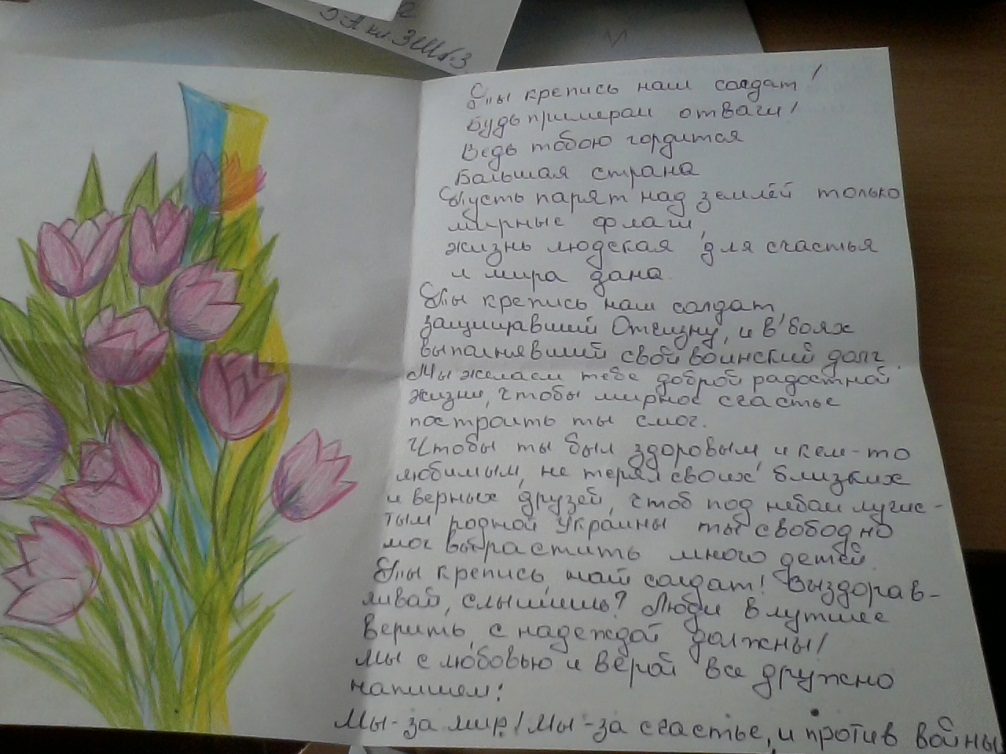 3-А кл. ЗШ №3
Ты крепись наш солдат!
Будь примером отваги!
Ведь тобою гордится
Большая страна
Пусть парят над землёй только
мирные флаги,
жизнь людская для счастья
и мира дана.
Ты крепись наш солдат,
защищавший Отчизну, и в боях
выполнявший свой воинский долг.
Мы желаем тебе доброй радостной
жизни, чтобы мирное счастье
построить ты смог.
Чтобы ты был здоровым и кем-то
любимым, не терял своих близких
и верных друзей, чтоб под небом лучис-
тым родной Украины ты свободно
мог вырастить много детей.
Ты крепись, наш солдат! Выздорав-
ливай, слышишь? Люди в лутшее
верить, с надеждой должны!
Мы с любовью и верой все дружно
напишем:
Мы-за мир! Мы-за счастье, и против войны